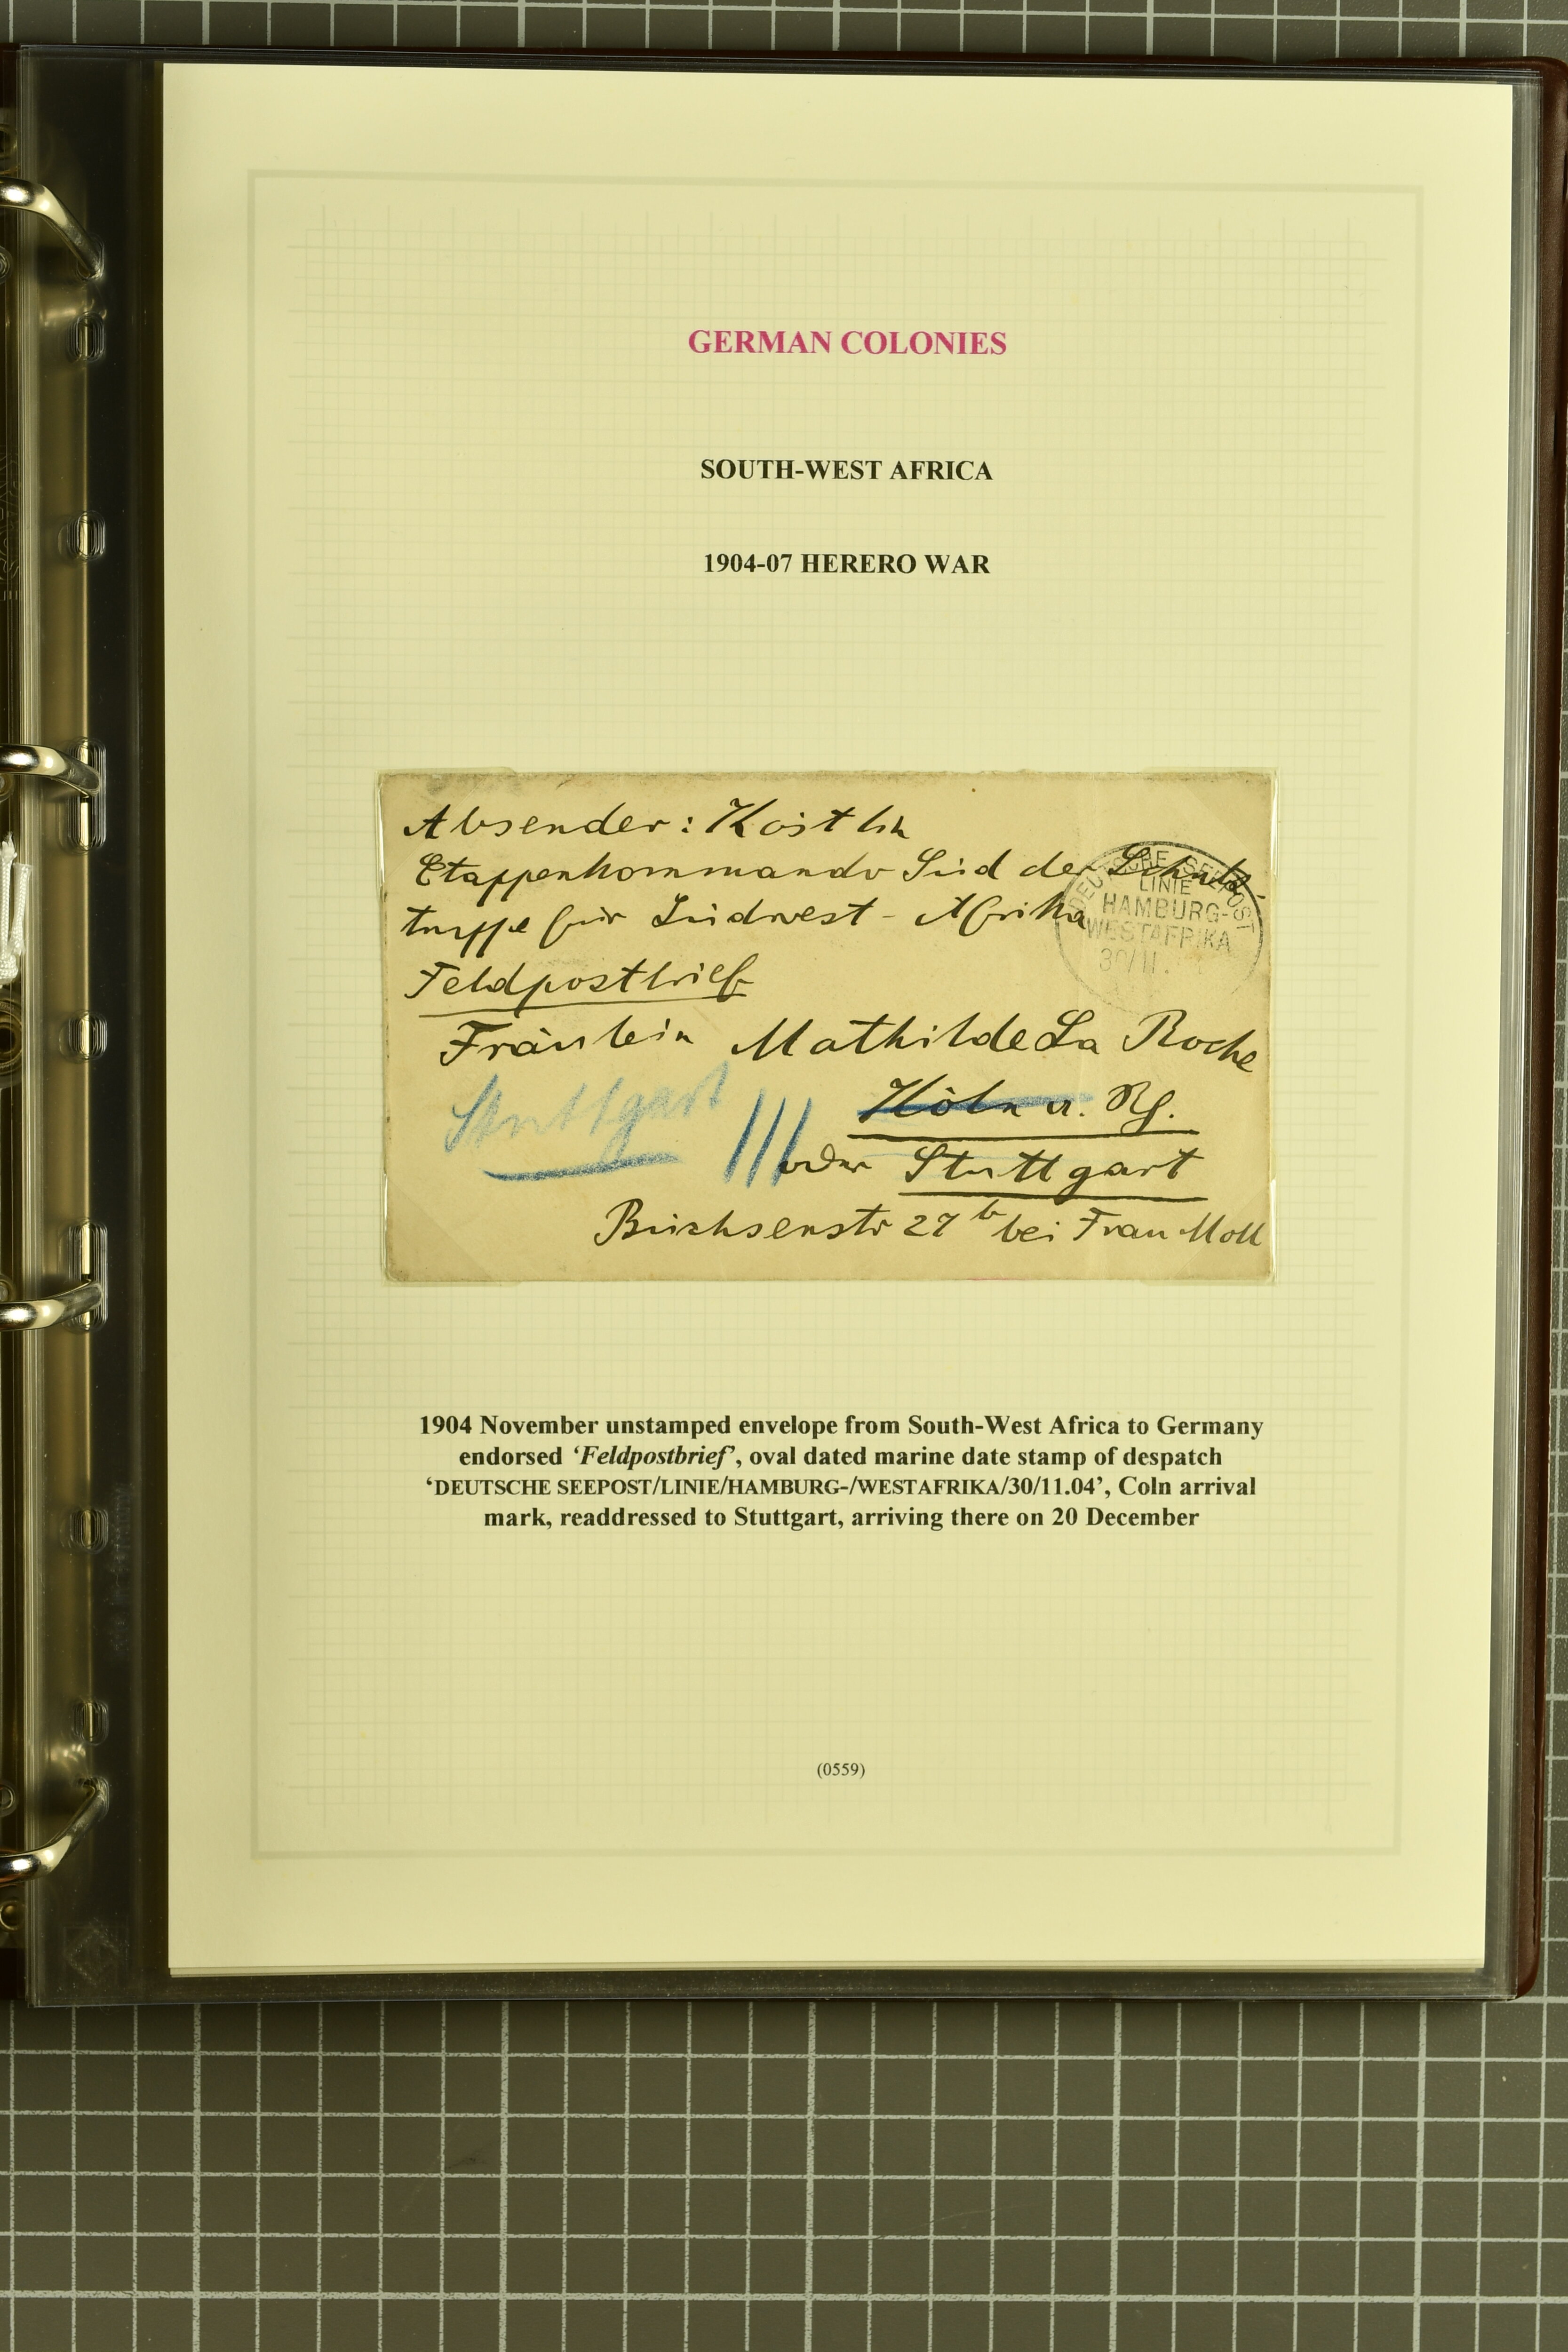 GERMAN COLONIES
SOUTH-WEST AFRICA
1904-07 HERERO WAR
Absender: Köstlin
Etappenkommando Süd der Schutz-
truppe für Südwest-Afrika
Feldpostbrief
DEUTSCHE SEEPOST
LINIE
HAMBURG-
WESTAFRIKA
30/11.
Fräulein Mathilde La Roche
Köln a. Rh.
Stuttgart
oder Stuttgart
Büchsenstr 27 b bei Frau Moll
1904 November unstamped envelope from South-West Africa to Germany
endorsed ‘Feldpostbrief’, oval dated marine date stamp of despatch
‘DEUTSCHE SEEPOST/LINIE/HAMBURG-/WESTAFRIKA/30/11.04’, Coln arrival
mark, readdressed to Stuttgart, arriving there on 20 December
(0559)